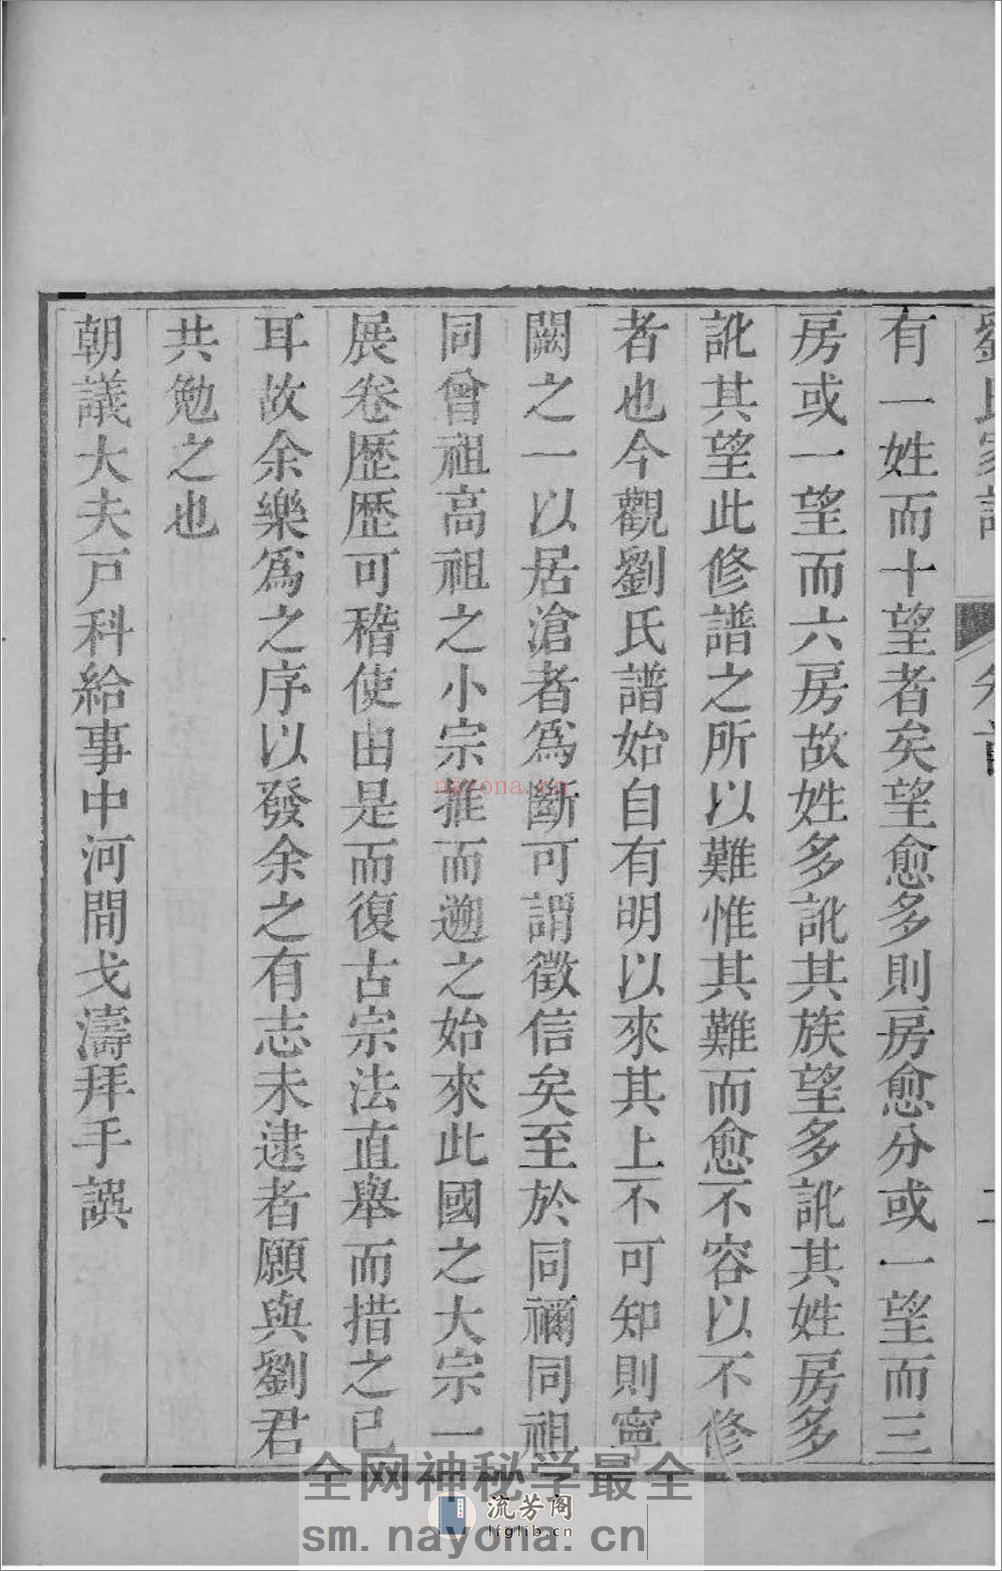 劉氏家譜
有一姓而十望者矣望愈多則房愈分或一望而三
房或一望而六房故姓多訛其族望多訛其姓房多
訛其望此修譜之所以難惟其難而愈不容以不修
者也今觀劉氏譜始自有明以來其上不可知則寧
闕之一以居滄者爲斷可謂徵信矣至於同禰同祖
同曾祖高祖之小宗推而遡之始來此國之大宗一
展卷歷歷可稽使由是而復古宗法直舉而措之已
耳故余樂爲之序以發余之有志未逮者願與劉君
共勉之也
朝議大夫戸科給事中河間戈濤拜手譔
nayona.cn
全网神秘学最全
流芳阁
lfglib.cn
sm.nayona.cn